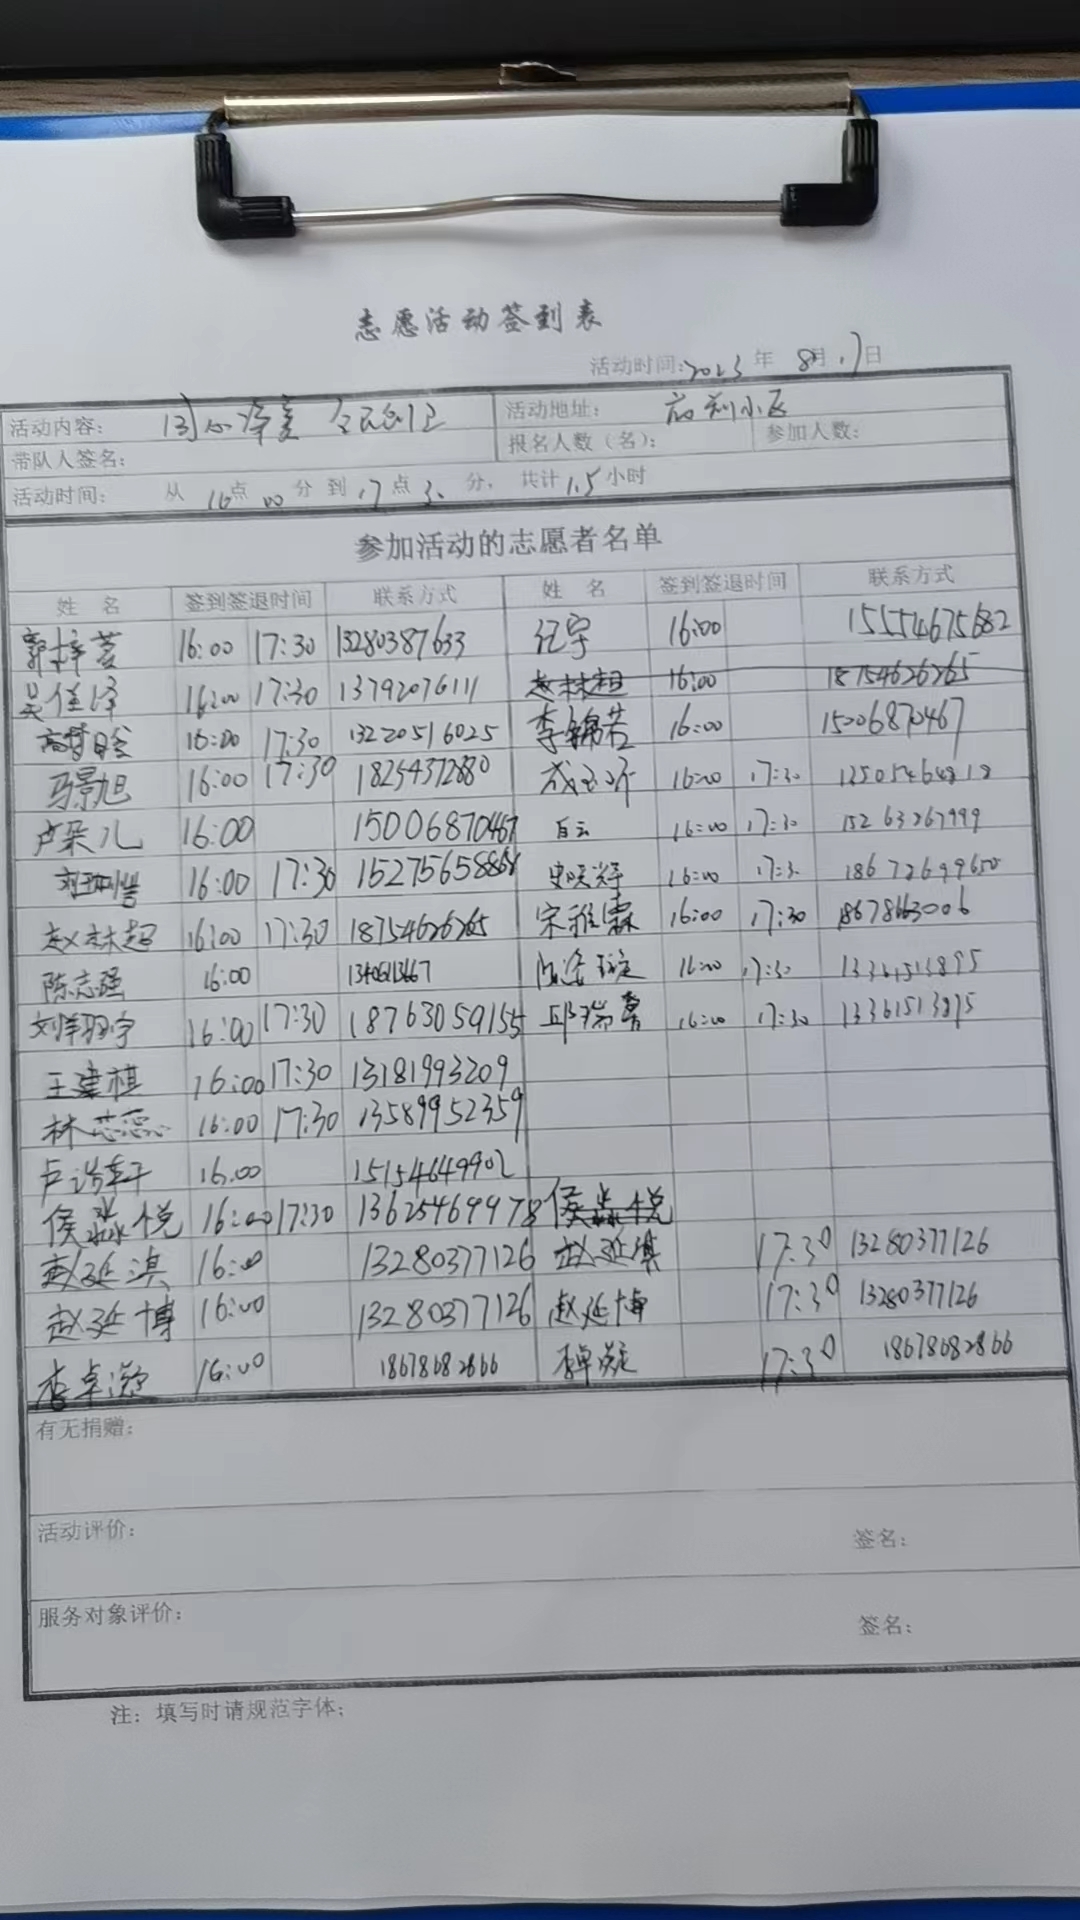 志愿活动签到表
活动时间: 2023年 8月17日
活动内容: 同心 创卫 活动地址: 小区
带队人签名: 报名人数(名): 参加人数:
活动时间: 从 16点 00分 到 17点 30分, 共计1.5小时
参加活动的志愿者名单
姓 名 签到签退时间 联系方式 姓 名 签到签退时间 联系方式
郭梓萱 16:00 17:30 13280387633 纪宇 16:00 15554675682
吴佳泽 16:00 17:30 13792076111 赵林超 16:00 18754626265
高 16:00 17:30 13220516025 李锦若 16:00 15006870467
马景旭 16:00 17:30 18254372880 成 16:00 17:30
卢朵儿 16:00 15006870467 白云 16:00 17:30 15263267999
16:00 17:30 16:00 17:30 18672699650
赵林超 16:00 17:30 18754626265 宋雅霖 16:00 17:30
陈志强 16:00 16:00 17:30 13361513895
刘 宇 16:00 17:30 18763059155 邱瑞 16:00 17:30 13361513895
王建棋 16:00 17:30 13181993209
林芯蕊 16:00 17:30 13589952359
卢 16:00 15154649902
侯淼悦 16:00 17:30 13625469978 侯淼悦
赵延淇 16:00 13280377126 赵延淇 17:30 13280377126
赵延博 16:00 13280377126 赵延博 17:30 13280377126
李卓凝 16:00 18678682866 李卓凝 17:30 18678682866
有无捐赠:
活动评价: 签名:
服务对象评价: 签名:
注: 填写时请规范字体;